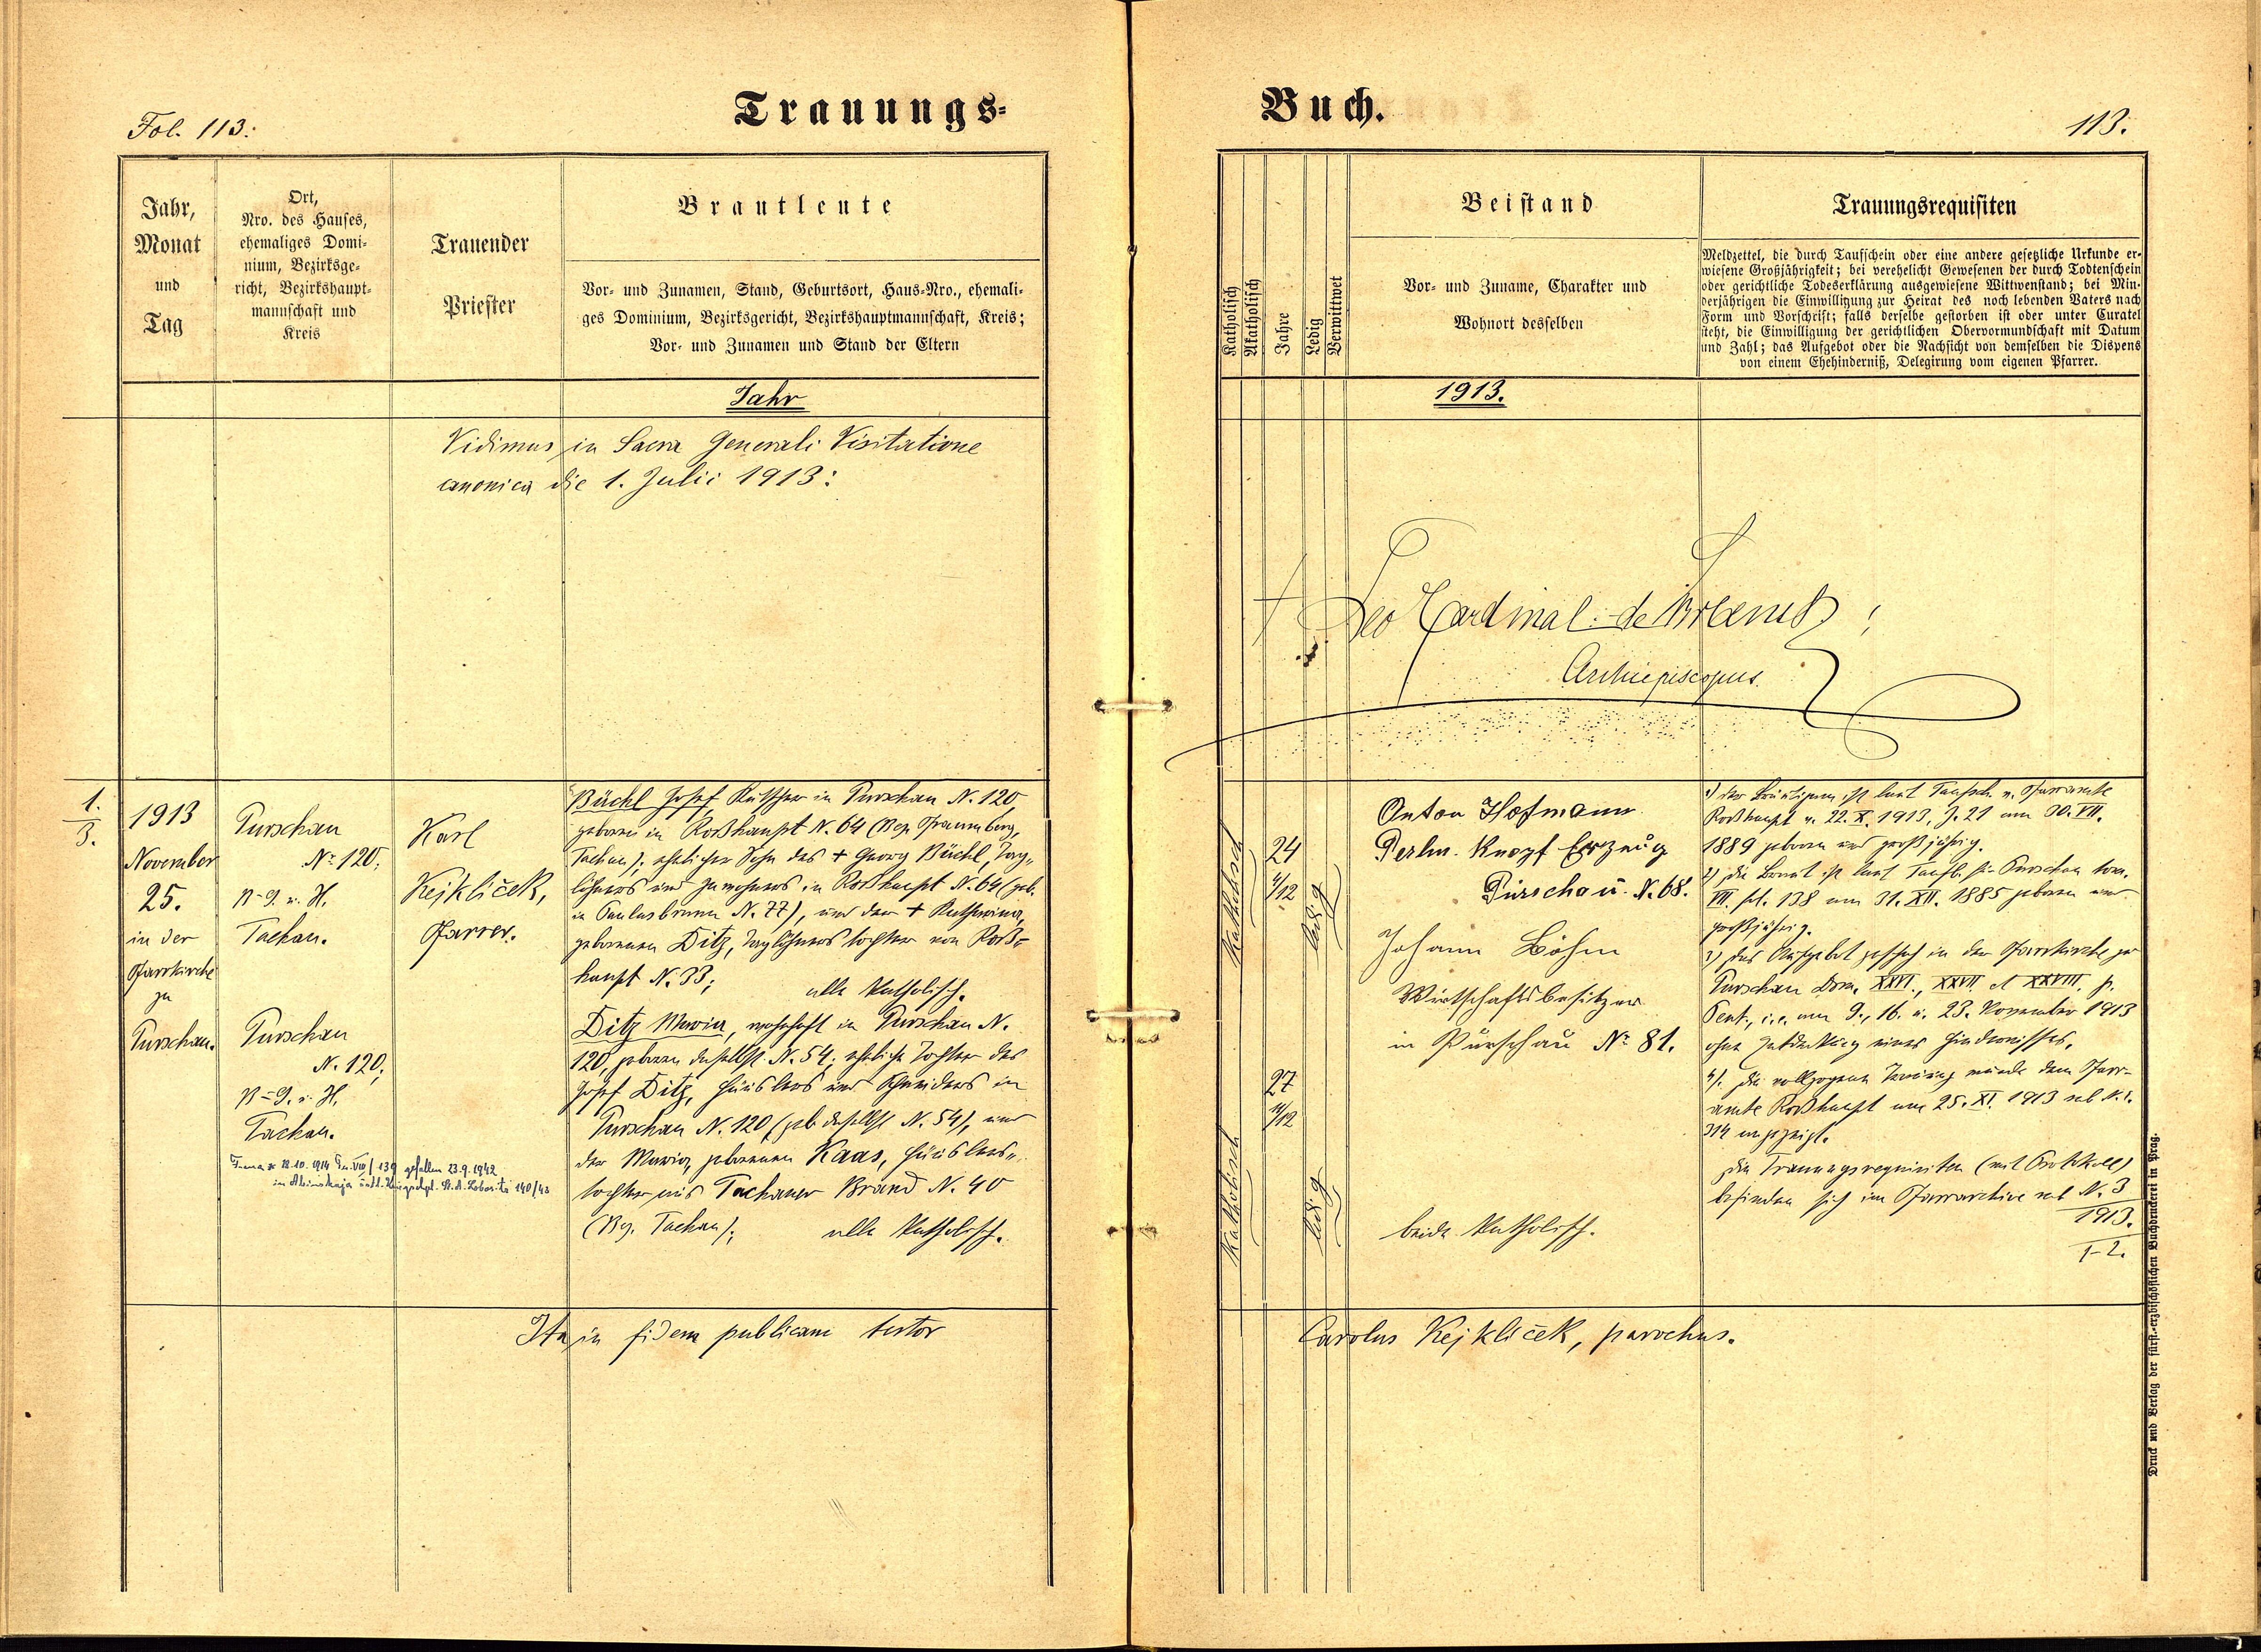 Fol. 113.
Trauungs-
Jahr,
Monat
und
Tag
Ort,
Nro. des Hauses,
ehemaliges Domi-
nium, Bezirksge-
richt, Bezirkshaupt-
mannschaft und
Kreis
Trauender
Priester
Brautleute
Vor- und Zunamen, Stand, Geburtsort, Haus-Nro., ehemali-
ges Dominium, Bezirksgericht, Bezirkshauptmannschaft, Kreis;
Vor- und Zunamen und Stand der Eltern
Jahr
Vidimus in Sacra Generali Visitatione
canonica die 1. Julii 1913:
1.
3.
1913
November
25.
in der
Pfarrkirche
zu
Purschau.
Purschau
No 120;
B-G. u. H.
Tachau.
Purschau
N. 120;
B-G. u. H.
Tachau.
gefallen 23.9.1942
Karl
Kejklíček,
Pfarrer.
Büchl Josef Kutscher in Purschau N. 120,
geboren in Roßhaupt N. 64 (Bez. Pfraumberg,
Tachau); ehelicher Sohn des + Georg Büchl, Tag-
löhners und Inwohners in Roßhaupt N. 64 (geb.
in Paulusbrunn N. 77), und der + Katharina,
geborenen Ditz, Taglöhnerstochter von Roß-
haupt N. 33; alle katholisch.
Ditz Maria, wohnhaft in Purschau N.
120, geboren daselbst N. 54; eheliche Tochter des
Josef Ditz, Häuslers und Schneiders in
Purschau N. 120 (geb. daselbst N. 54), und
der Maria, geborenen Kaas, Häuslers-
tochter aus Tachauer Brand N. 40
(Bz. Tachau); alle katholisch.
Ita in fidem publicam testor
Buch.
113.
Katholisch
Akatholisch
Jahre
Ledig
Verwittwet
Beistand
Vor- und Zuname, Charakter und
Wohnort desselben
Trauungsrequisiten
Meldzettel, die durch Taufschein oder eine andere gesetzliche Urkunde er-
wiesene Großjährigkeit; bei verehelicht Gewesenen der durch Todtenschein
oder gerichtliche Todeserklärung ausgewiesene Wittwenstand; bei Min-
derjährigen die Einwilligung zur Heirat des noch lebenden Vaters nach
Form und Vorschrift; falls derselbe gestorben ist oder unter Curatel
steht, die Einwilligung der gerichtlichen Obervormundschaft mit Datum
und Zahl; das Aufgebot oder die Nachsicht von demselben die Dispens
von einem Ehehinderniß, Delegirung vom eigenen Pfarrer.
1913.
+ Leo Cardinal de Skrbenský
Archiepiscopus
Katholisch
24
4/12
ledig
Katholisch
27
11/12
ledig
Anton Hofmann
Perlm. Knopf Erzeug
Purschau. N. 68.
Johann Böhm
Wirtschaftsbesitzer
in Purschau No 81.
beide katholisch.
1) Der Bräutigam ist laut Taufsch. v. Pfarramte
Roßhaupt v. 22. X. 1913, Z. 21 am 30. VII.
1889 geboren und großjährig.
2) Die Braut ist laut Taufb. für Purschau tom.
VII. fol. 138 am 31. XII. 1885 geboren und
großjährig.
3) Das Aufgebot geschah in der Pfarrkirche zu
Purschau Dom. XXVI., XXVII. et XXVIII. p.
Pent., i.e. am 9., 16. u. 23. November 1913
ohne Entdeckung eines Hindernisses.
4). Die vollzogene Trauung wurde dem Pfarr-
amte Roßhaupt am 25. XI. 1913 sub N. E.
314 angezeigt.
Die Trauungsrequisiten (mit Protokoll)
befinden sich im Pfarrarchive sub N. 3
1913.
1-2.
Carolus Kejklíček, parochus.
Druck und Verlag der fürst-erzbischöflichen Buchdruckerei in Prag.